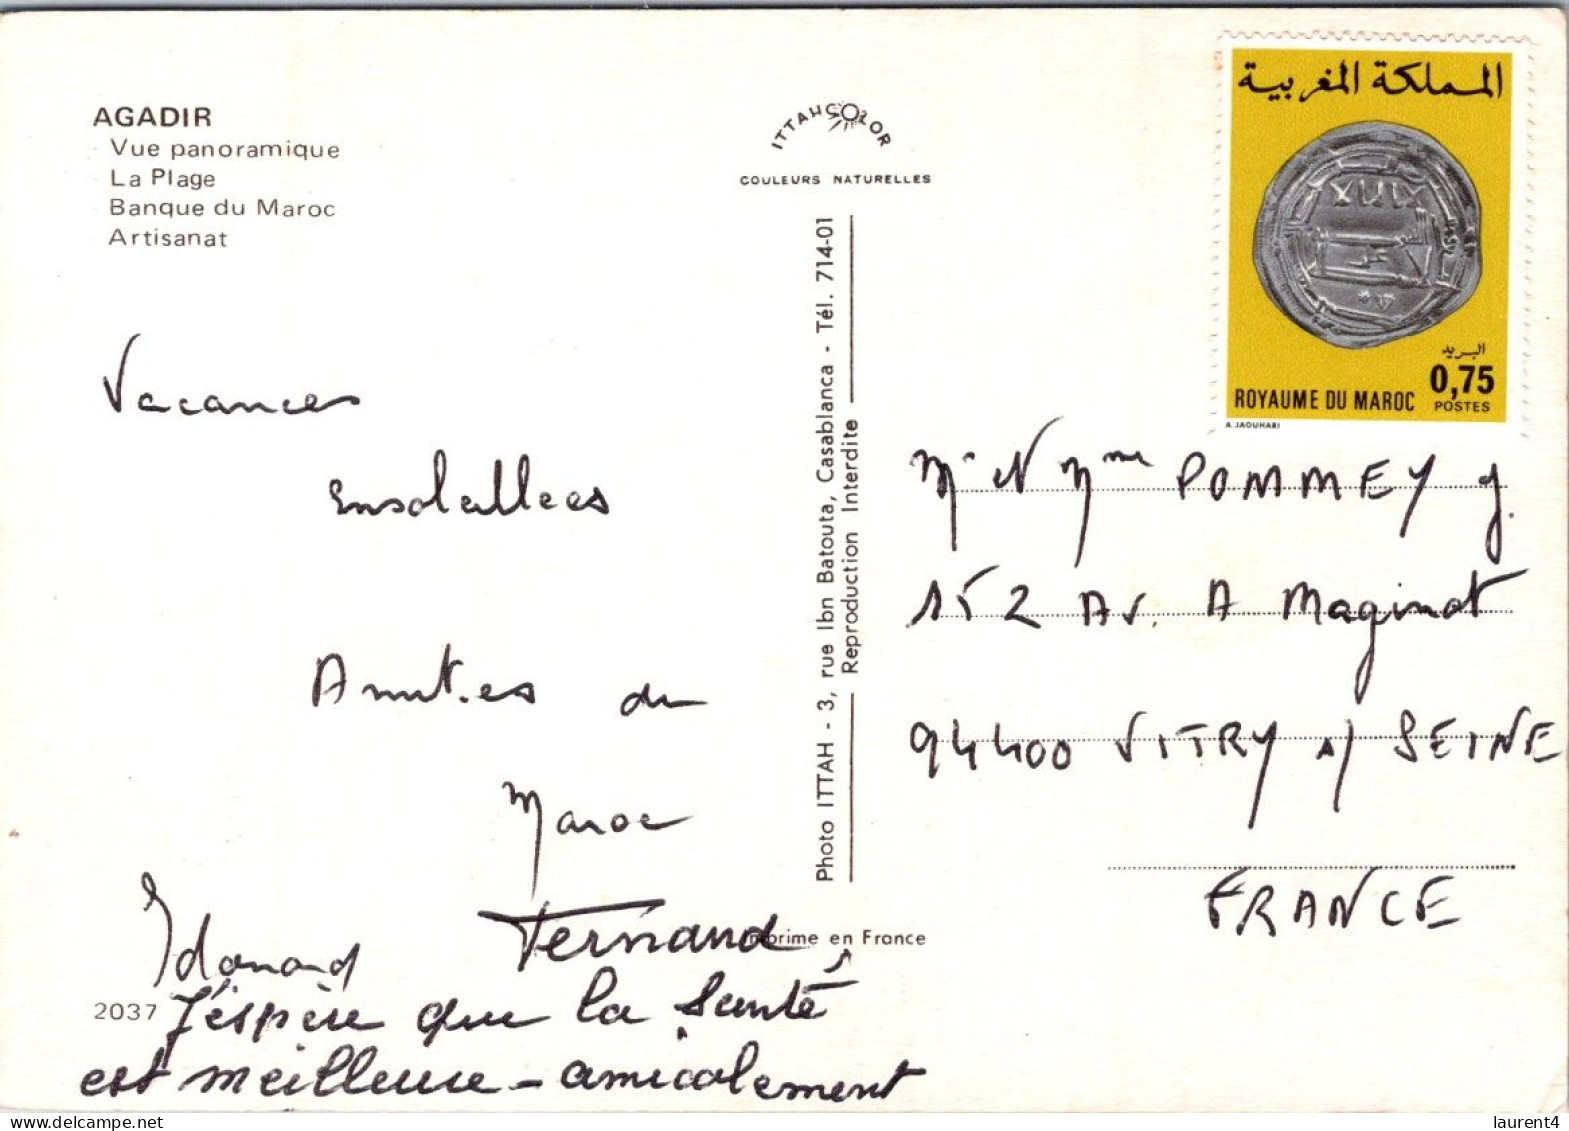 AGADIR
Vue panoramique
La Plage
Banque du Maroc
Artisanat
ITTAHCOLOR
COULEURS NATURELLES
المملكة المغربية
البريد
0,75
ROYAUME DU MAROC
POSTES
A. JAOUHARI
Photo ITTAH - 3, rue Ibn Batouta, Casablanca - Tél. 714-01
Reproduction Interdite
Vacances
ensoleillees
Amities du
Maroc
Edouard Fernand
J'éspère que la Santé
est meilleure - amicalement
Mr et Mme POMMEY J.
152 Av. A Maginot
94400 VITRY s/ SEINE
FRANCE
Imprime en France
2037
laurent4